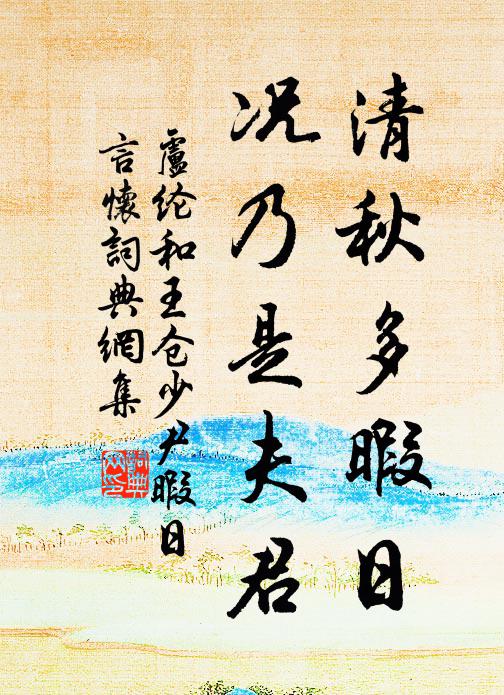 清秋多暇日
况乃是夫君
盧纶和王仓少尹暇日
言懷詞典網集